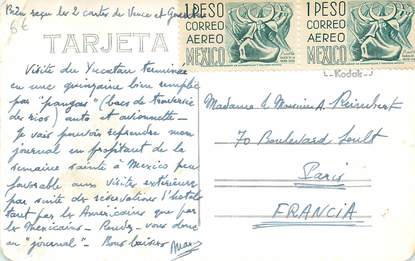 Bien reçu les 2 cartes de Vence et
6€
TARJETA
Visite du Yucatan terminée
en une quinzaine bien remplie
par "pangas" (bacs de traversée
des rios) auto et avionnette -
Je vais pouvoir reprendre mon
journal en profitant de la
semaine sainte à Mexico peu
favorable aux visites extérieures
par suite des réservations d'hotels
tant par les Américains que par
les Mexicains - Rendez-vous donc
au "journal" - Bons baisers
1 PESO
CORREO
AEREO
MEXICO
1 PESO
CORREO
AEREO
MEXICO
Kodak
Madame et Monsieur A. Reimbert
70 Boulevard Soult
Paris
FRANCIA